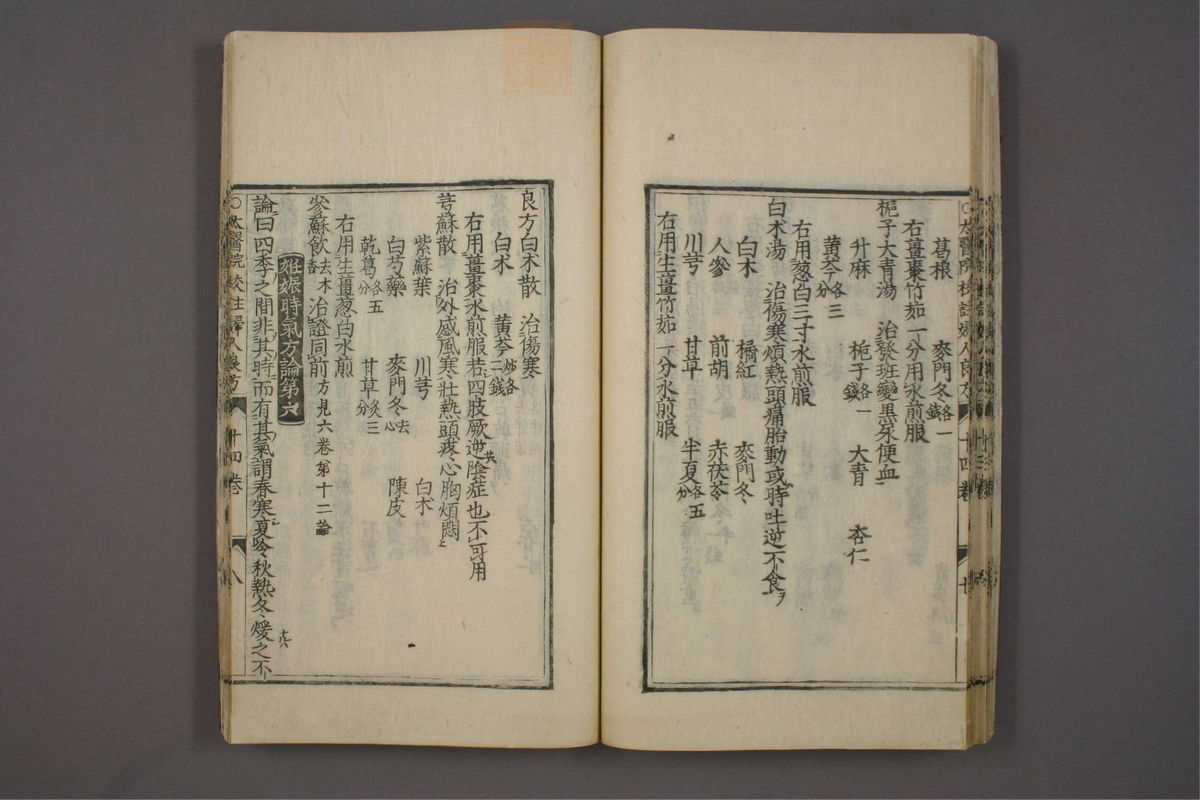 葛根 麥門冬各一錢
右薑棗竹茹一分用水煎服
梔子大青湯 治發班變黑尿便血
升麻 梔子各一錢 大青 杏仁
黄芩各三分
右用葱白三寸水煎服
白朮湯 治傷寒煩熱頭痛胎動或時吐逆不食
白朮 橘紅 麥門冬
人參 前胡 赤茯苓
川芎 甘草 半夏各五分
右用生薑竹茹一分水煎服
良方白朮散 治傷寒
白朮 黄芩炒各二錢
右用薑棗水煎服若四肢厥逆陰症也不可用
芎蘇散 治外感風寒壯熱頭疼心胸煩悶
紫蘇葉 川芎 白朮
白芍藥 麥門冬去心 陳皮
乾葛各五分 甘草炙三分
右用生薑葱白水煎
參蘇飲去木香 治證同前方見六卷第十二論
妊娠時氣方論第六
論曰四季之間非其時而有其氣謂春寒夏冷秋熱冬煖之不
○太醫院校註婦人良方 十四卷 八